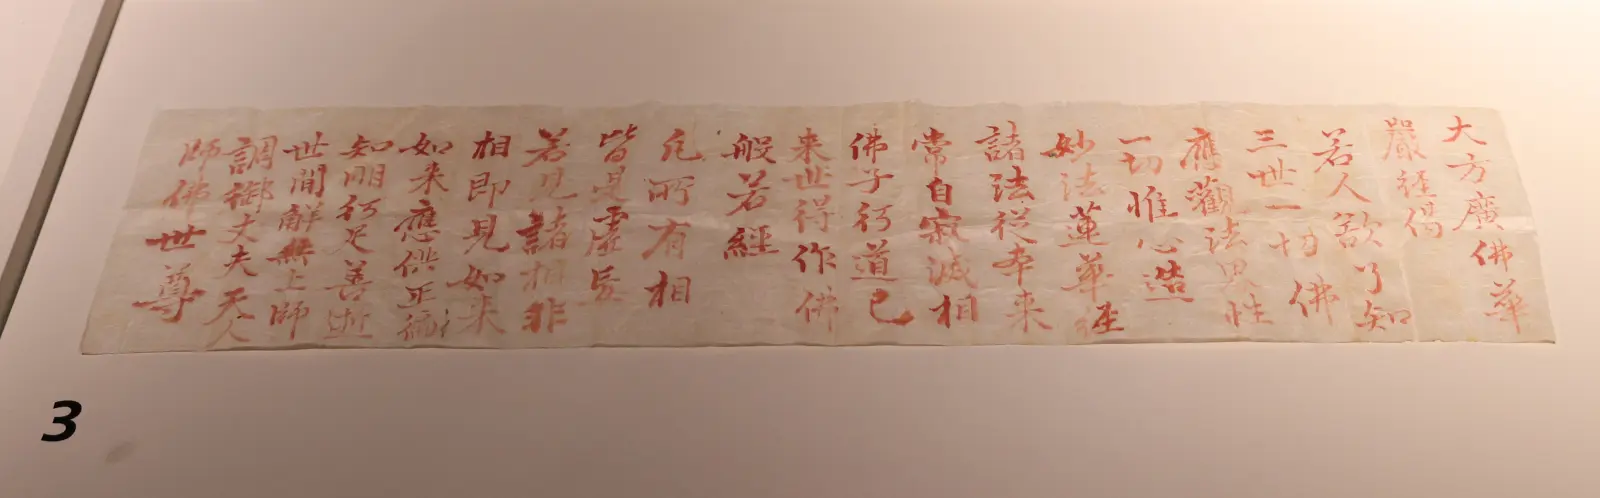 大方廣佛華
嚴経偈
若人欲了知
三世一切佛
應觀法界性
一切惟心造
妙法蓮華経
諸法從本来
常自寂滅相
佛子行道已
来世得作佛
般若經
凡所有相
皆是虛妄
若見諸相非
相即見如来
如来應供正徧
知明行足善逝
世間解無上師
調御丈夫天人
師佛世尊
3